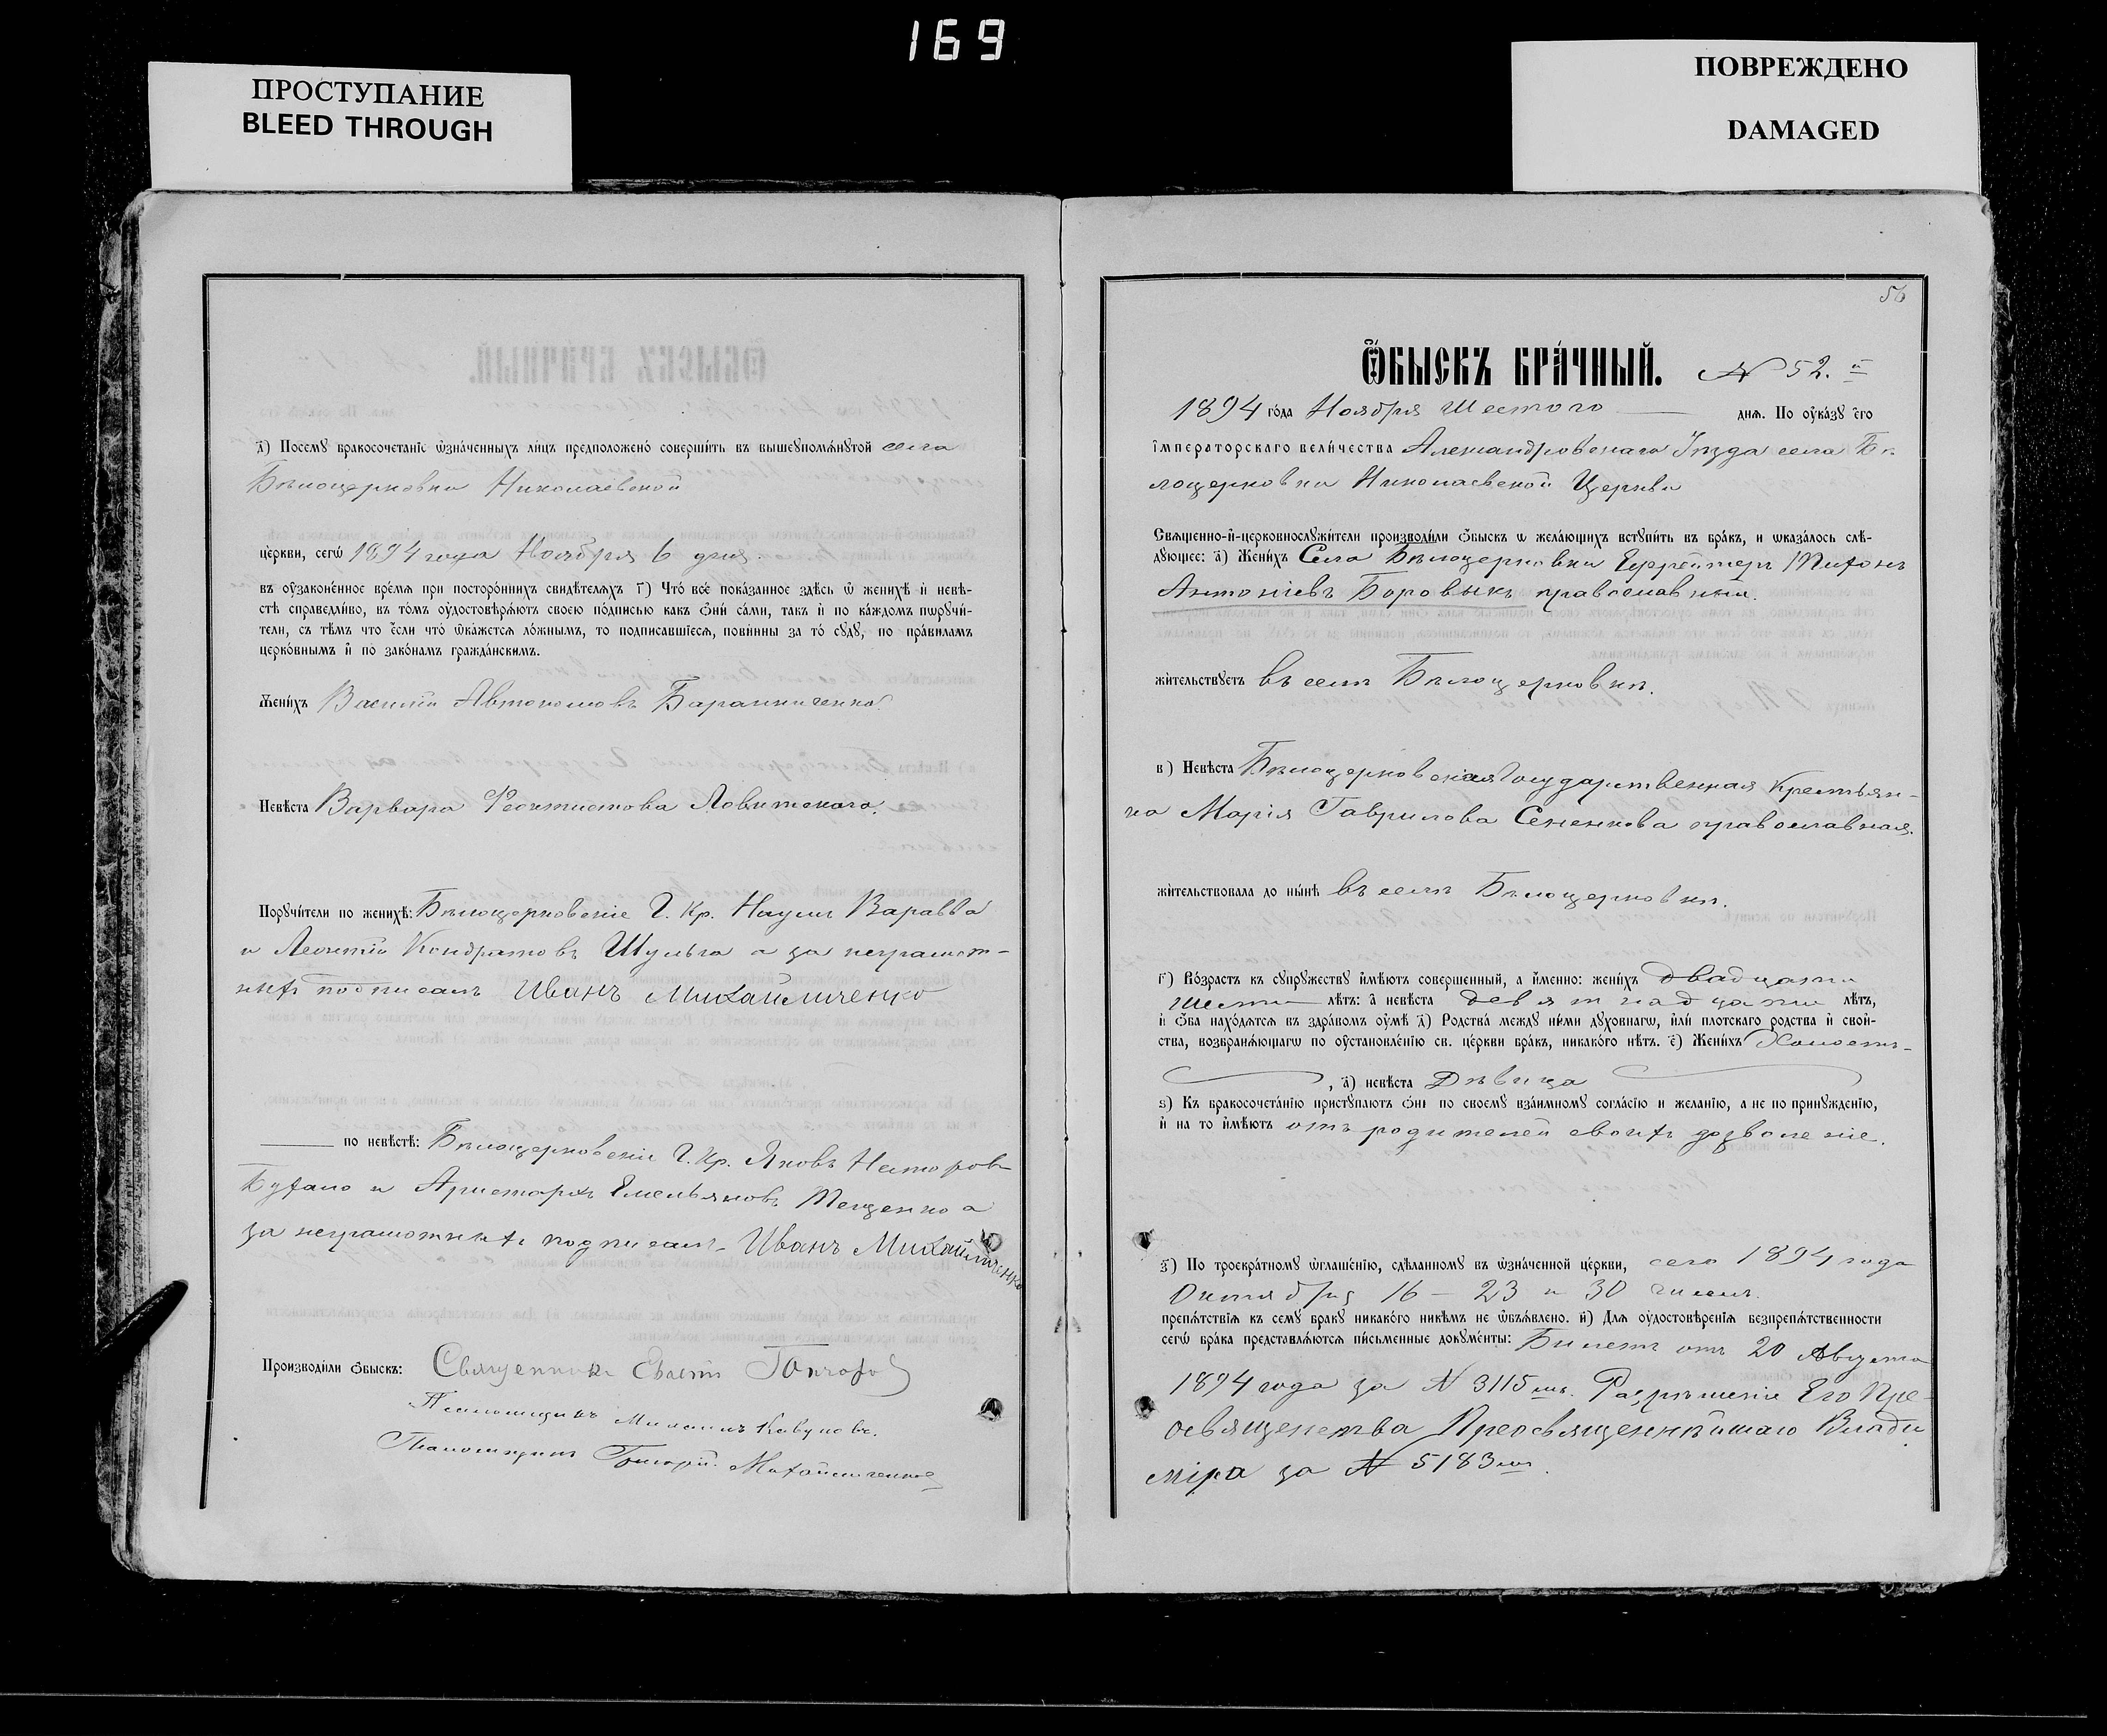 169
ПРОСТУПАНИЕ
BLEED THROUGH
ПОВРЕЖДЕНО
DAMAGED
д҃) Посемꙋ бракосочетанїе ѡзна́ченныхъ ли́цъ предположено́ соверши́ть въ вышеꙋпомѧ́нꙋтой села
Бѣлоцерковки Николаевской
це́ркви, сегѡ̀ 1894 года Ноября 6 дня.
въ ᲂу҆зако́ненное вре́мѧ при посторо́ннихъ свидѣтелѧхъ г҃) Что́ всѐ пока́занное здѣсь ѡ҆ женихѣ̀ и҆ невѣ-
стѣ справедли́во, въ то́мъ ᲂу҆достовѣрѧ́ютъ своею по́дписью какъ ѻ҆нѝ са́ми, такъ и҆ по ка́ждомъ пѡрꙋчи́-
тели, съ тѣмъ что є҆́сли что́ ѡ҆ка́жетсѧ ло́жнымъ, то подписавшїесѧ, пови́нны за то́ сꙋдꙋ̀, по пра́виламъ
церко́внымъ и҆ по зако́намъ гражда́нскимъ.
Жени́хъ Василій Автономовъ Баранниченко.
Невѣ́ста Варвара Феоктистова Ловитского.
Порꙋчи́тели по женихѣ̀: Бѣлоцерковскіе Г. Кр. Наумъ Варавва
и Леонтій Кондратовъ Шульга а за неграмот-
ныхъ подписалъ Иванъ Михайличенко
по невѣ́стѣ: Бѣлоцерковскіе Г. Кр. Яковъ Несторов
и Аристархъ Емельяновъ Тещенко а
за неграмотныхъ подписалъ Иванъ Михайличенко
Производи́ли ѻ҆́быскъ: Священникъ
Псаломщикъ Михаилъ
Псаломщикъ Григорій Михайличенко
56
Ѻ҆́БЫСКЪ БРА́ЧНЫЙ. № 52.й
1894 го́да Ноября шестого днѧ. По ᲂу҆ка́зꙋ є҆гѡ̀
і҆мператорскаго вели́чества Александровскаго Уѣзда села Бѣ
лоцерковки Николаевской Церкви
Свѧщенно-и҆-церковнослꙋжи́тели производи́ли ѻ҆́быскъ ѡ҆ жела́ющихъ встꙋпи́ть въ бра́къ, и ѡ҆каза́лось слѣ́-
дꙋющее: а҃) Жени́хъ Села Бѣлоцерковки Ефрейторъ Тихонъ
Антоніевъ Боровыкъ православный.
жи́тельствꙋетъ въ селѣ Бѣлоцерковкѣ.
в҃) Невѣ́ста Бѣлоцерковская Государственная Крестьян-
ка Марія Гаврилова Сененкова православная.
жи́тельствовала до ны́нѣ въ селѣ Бѣлоцерковкѣ.
г҃) Во́зрастъ къ сꙋпрꙋжествꙋ и҆мѣ́ютъ соверше́нный, а и҆́менно: жени́хъ двадцати
шести лѣтъ: а҆ невѣ́ста девятнадцати лѣтъ,
и҆ ѻ҆́ба нахо́дѧтсѧ въ здра́вомъ ᲂу҆мѣ̀ д҃) Родства̀ междꙋ ни́ми дꙋховнагѡ, и҆лѝ плотскаго родства и҆ свой-
ства, возбранѧ́ющагѡ по ᲂу҆становле́нїю св. це́ркви бра́къ, никако́го нѣ́тъ. є҃) Жени́хъ Холостъ-
, д҃) невѣ́ста Дѣвица
ѕ҃) Къ бракосочета́нїю пристꙋпа́ютъ ѻ҆ни по своемꙋ взаи́мномꙋ согла́сїю и жела́нїю, а не по принꙋжде́нїю,
и҆ на то и҆мѣ́ютъ отъ родителей своихъ дозволеніе.
з҃) По троекра́тномꙋ ѡ҆глаше́нїю, сдѣ́ланномꙋ въ ѡ҆зна́ченной це́ркви, сего 1894 года
Октября 16 – 23 и 30 числъ.
препѧ́тствїѧ къ семꙋ бракꙋ никако́го никѣ́мъ не ѡ҆б̾ѧ́влено. и҃) Длѧ ᲂу҆достовѣ́ренїѧ безпрепѧ́тственности
сегѡ̀ бра́ка представлѧ́ютсѧ пи́сьменные докꙋме́нты: Билетъ отъ 20 Августа
1894 года за № 3115 мъ. Разрѣшеніе Его Пре-
освященства Преосвященнѣйшаго Влади
міра за № 5183 мъ.